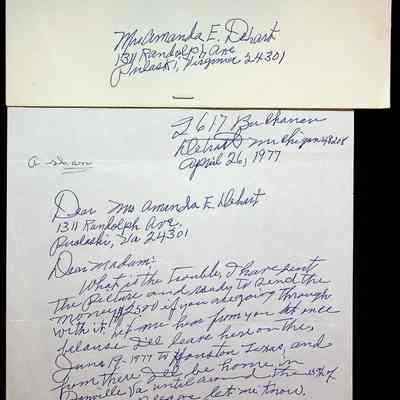 Mrs Amanda E. Dehart
1311 Randolph Ave
Pulaski, Virginia 24301
2617 Buchanan
Detroit Michigan 48208
April 26, 1977
Dear Mrs Amanda E Dehart
1311 Randolph Ave.
Pualaski, Va 24301
Dear Madam:
What is the Trouble, I have sent
the Picture and ready to send the
money $2500 if you are going through
with it. let me hear from you at once
because I'll leave here on the
June 19-1977 to Houston Texas, and
from there I'll be home in
Danville Va until around the 15th of
Please let me know.